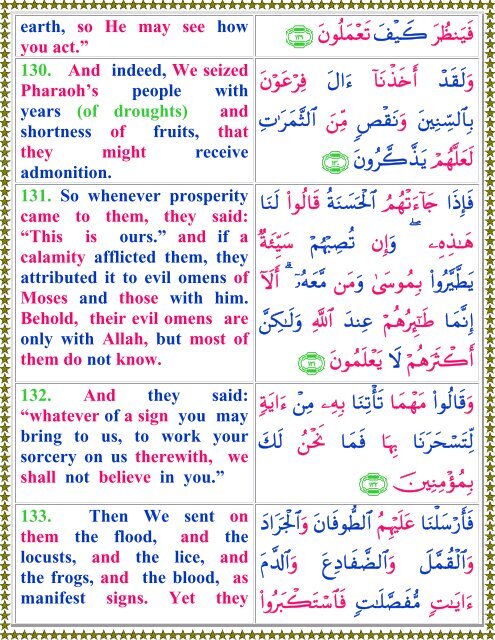 earth, so He may see how
you act.”
فَيَنظُرَ كَيْفَ تَعْمَلُونَ ١٢٩
130. And indeed, We seized
Pharaoh’s people with
years (of droughts) and
shortness of fruits, that
they might receive
admonition.
وَلَقَدْ أَخَذْنَآ ءَالَ فِرْعَوْنَ
بِٱلسِّنِينَ وَنَقْصٍ مِّنَ ٱلثَّمَرَٰتِ
لَعَلَّهُمْ يَذَّكَّرُونَ ١٣٠
131. So whenever prosperity
came to them, they said:
“This is ours.” and if a
calamity afflicted them, they
attributed it to evil omens of
Moses and those with him.
Behold, their evil omens are
only with Allah, but most of
them do not know.
فَإِذَا جَآءَتْهُمُ ٱلْحَسَنَةُ قَالُوا۟ لَنَا
هَـٰذِهِۦ ۖ وَإِن تُصِبْهُمْ سَيِّئَةٌ
يَطَّيَّرُوا۟ بِمُوسَىٰ وَمَن مَّعَهُۥٓ ۗ أَلَآ
إِنَّمَا طَـٰٓئِرُهُمْ عِندَ ٱللَّهِ وَلَـٰكِنَّ
أَكْثَرَهُمْ لَا يَعْلَمُونَ ١٣١
132. And they said:
“whatever of a sign you may
bring to us, to work your
sorcery on us therewith, we
shall not believe in you.”
وَقَالُوا۟ مَهْمَا تَأْتِنَا بِهِۦ مِنْ ءَايَةٍ
لِّتَسْحَرَنَا بِهَا فَمَا نَحْنُ لَكَ
بِمُؤْمِنِينَ ١٣٢
133. Then We sent on
them the flood, and the
locusts, and the lice, and
the frogs, and the blood, as
manifest signs. Yet they
فَأَرْسَلْنَا عَلَيْهِمُ ٱلطُّوفَانَ وَٱلْجَرَادَ
وَٱلْقُمَّلَ وَٱلضَّفَادِعَ وَٱلدَّمَ
ءَايَـٰتٍ مُّفَصَّلَـٰتٍ فَٱسْتَكْبَرُوا۟